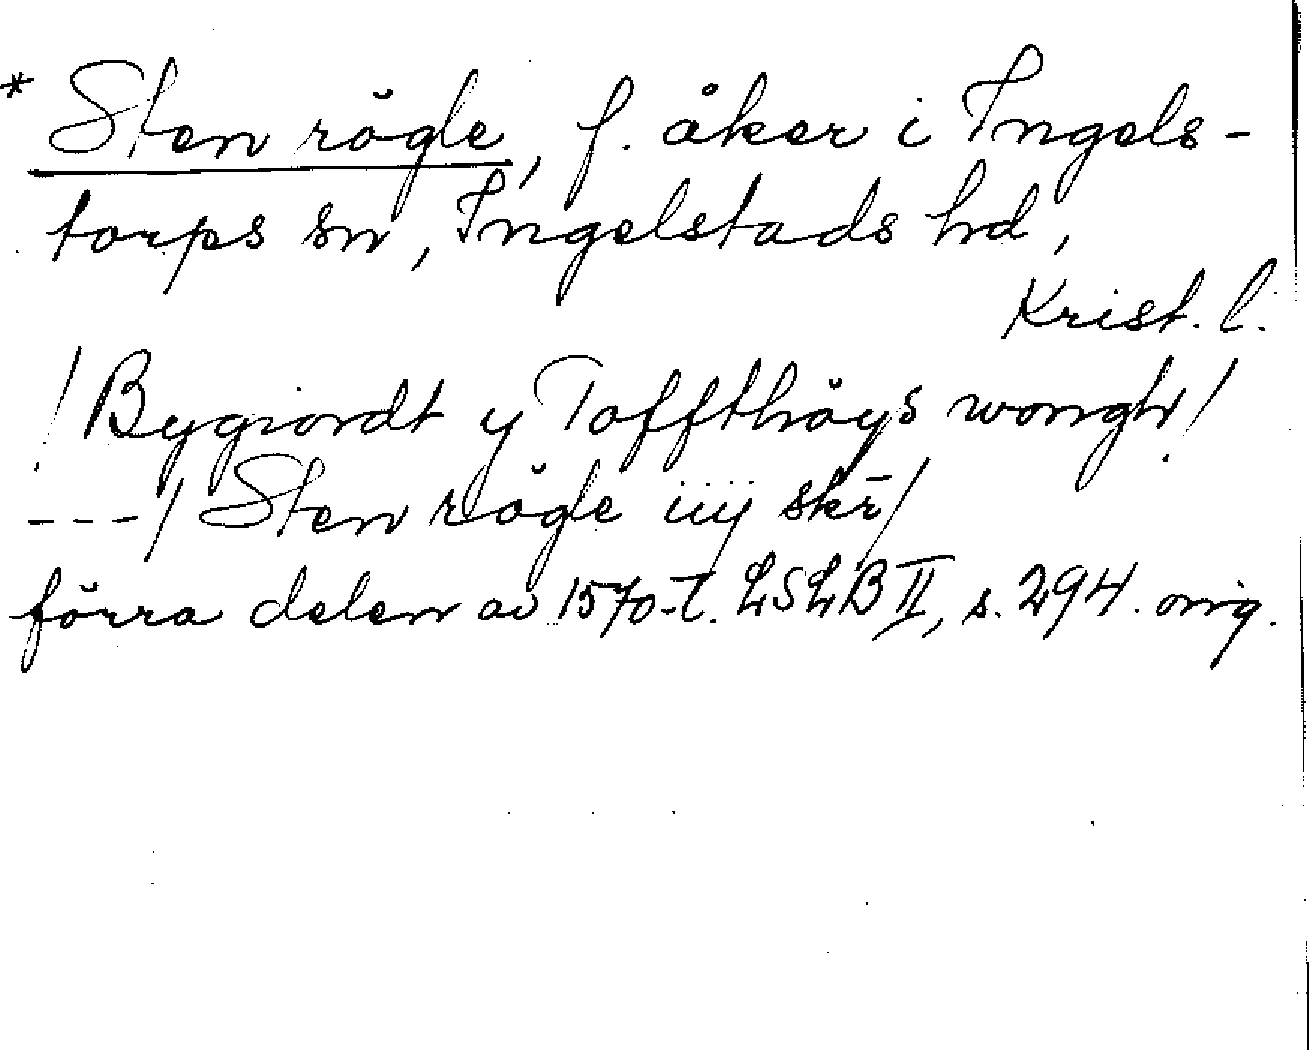 * Sten rögle, f. åker i Ingels-
torps sn, Ingelstads hd,
Krist. l.
! Bygiordt y Toffthöys wongh!
---/ Sten rögle iiij skr̄/
förra delen av 1570-t. LSLB II, s. 294. orig.